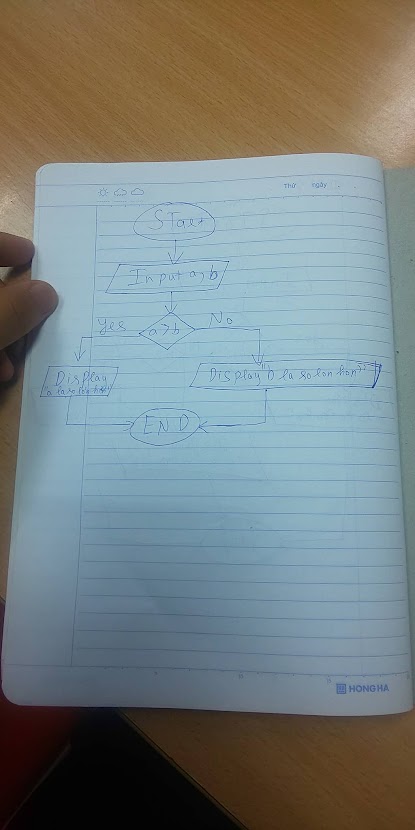 Thứ ngày
START
Input a, b
yes
a>b
No
Display
"a la so lon hon"
Display "b la so lon hon"
END
HONG HA